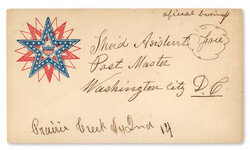 oficial business
Third Asistent free
Post Master
Washington City D.C
Prairie Creek Ind 14